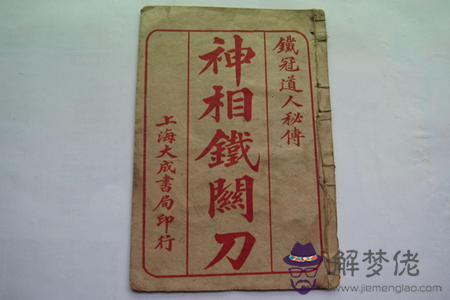 鐵冠道人秘傳
神相鐵關刀
上海大成書局印行
解梦佬
www.jiemenglao.com